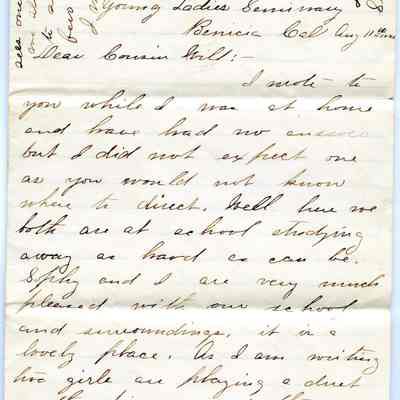 Young Ladies Seminary
Benicia Cal Aug 11th
Dear Cousin Will:-
I wrote to
you while I was at home
and have had no answer
but I did not expect one
as you would not know
where to direct. Well here we
both are at school studying
away as hard as can be.
Sophy and I are very much
pleased with our school
and surroundings, it is a
lovely place. As I am writing
two girls are playing a duet